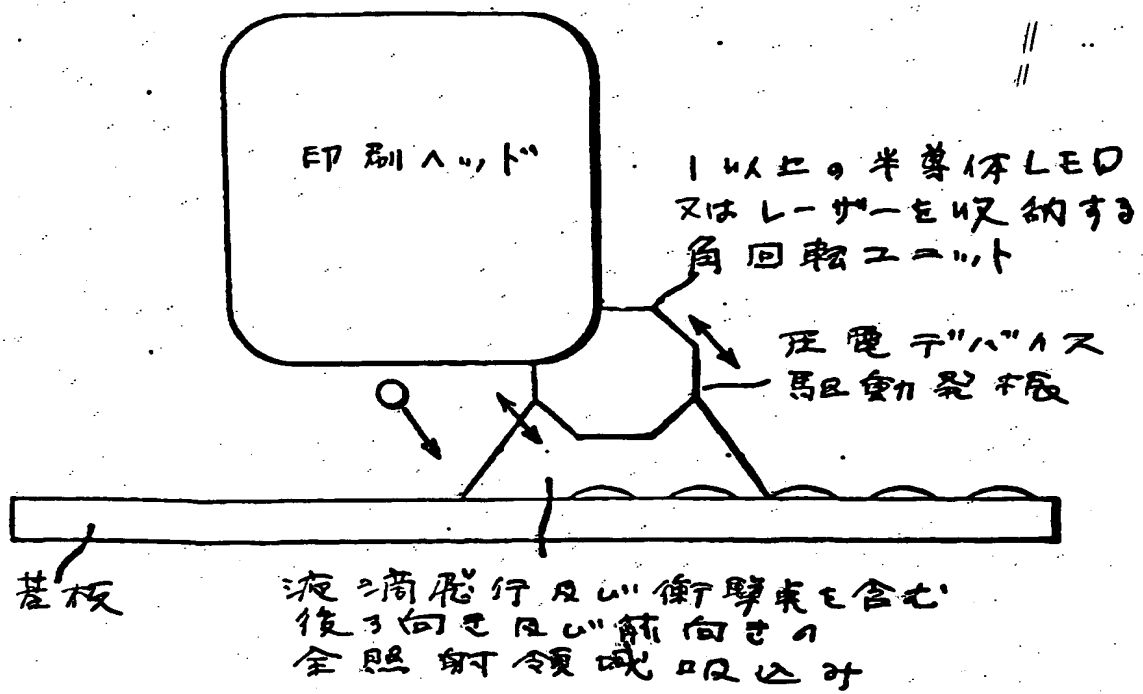 印刷ヘッド
1以上の半導体LED
又はレーザーを収納する
角回転ユニット
圧電デバイス
駆動発振
基板
液滴飛行及び衝撃点を含む
後ろ向き及び前向きの
全照射領域吸込み